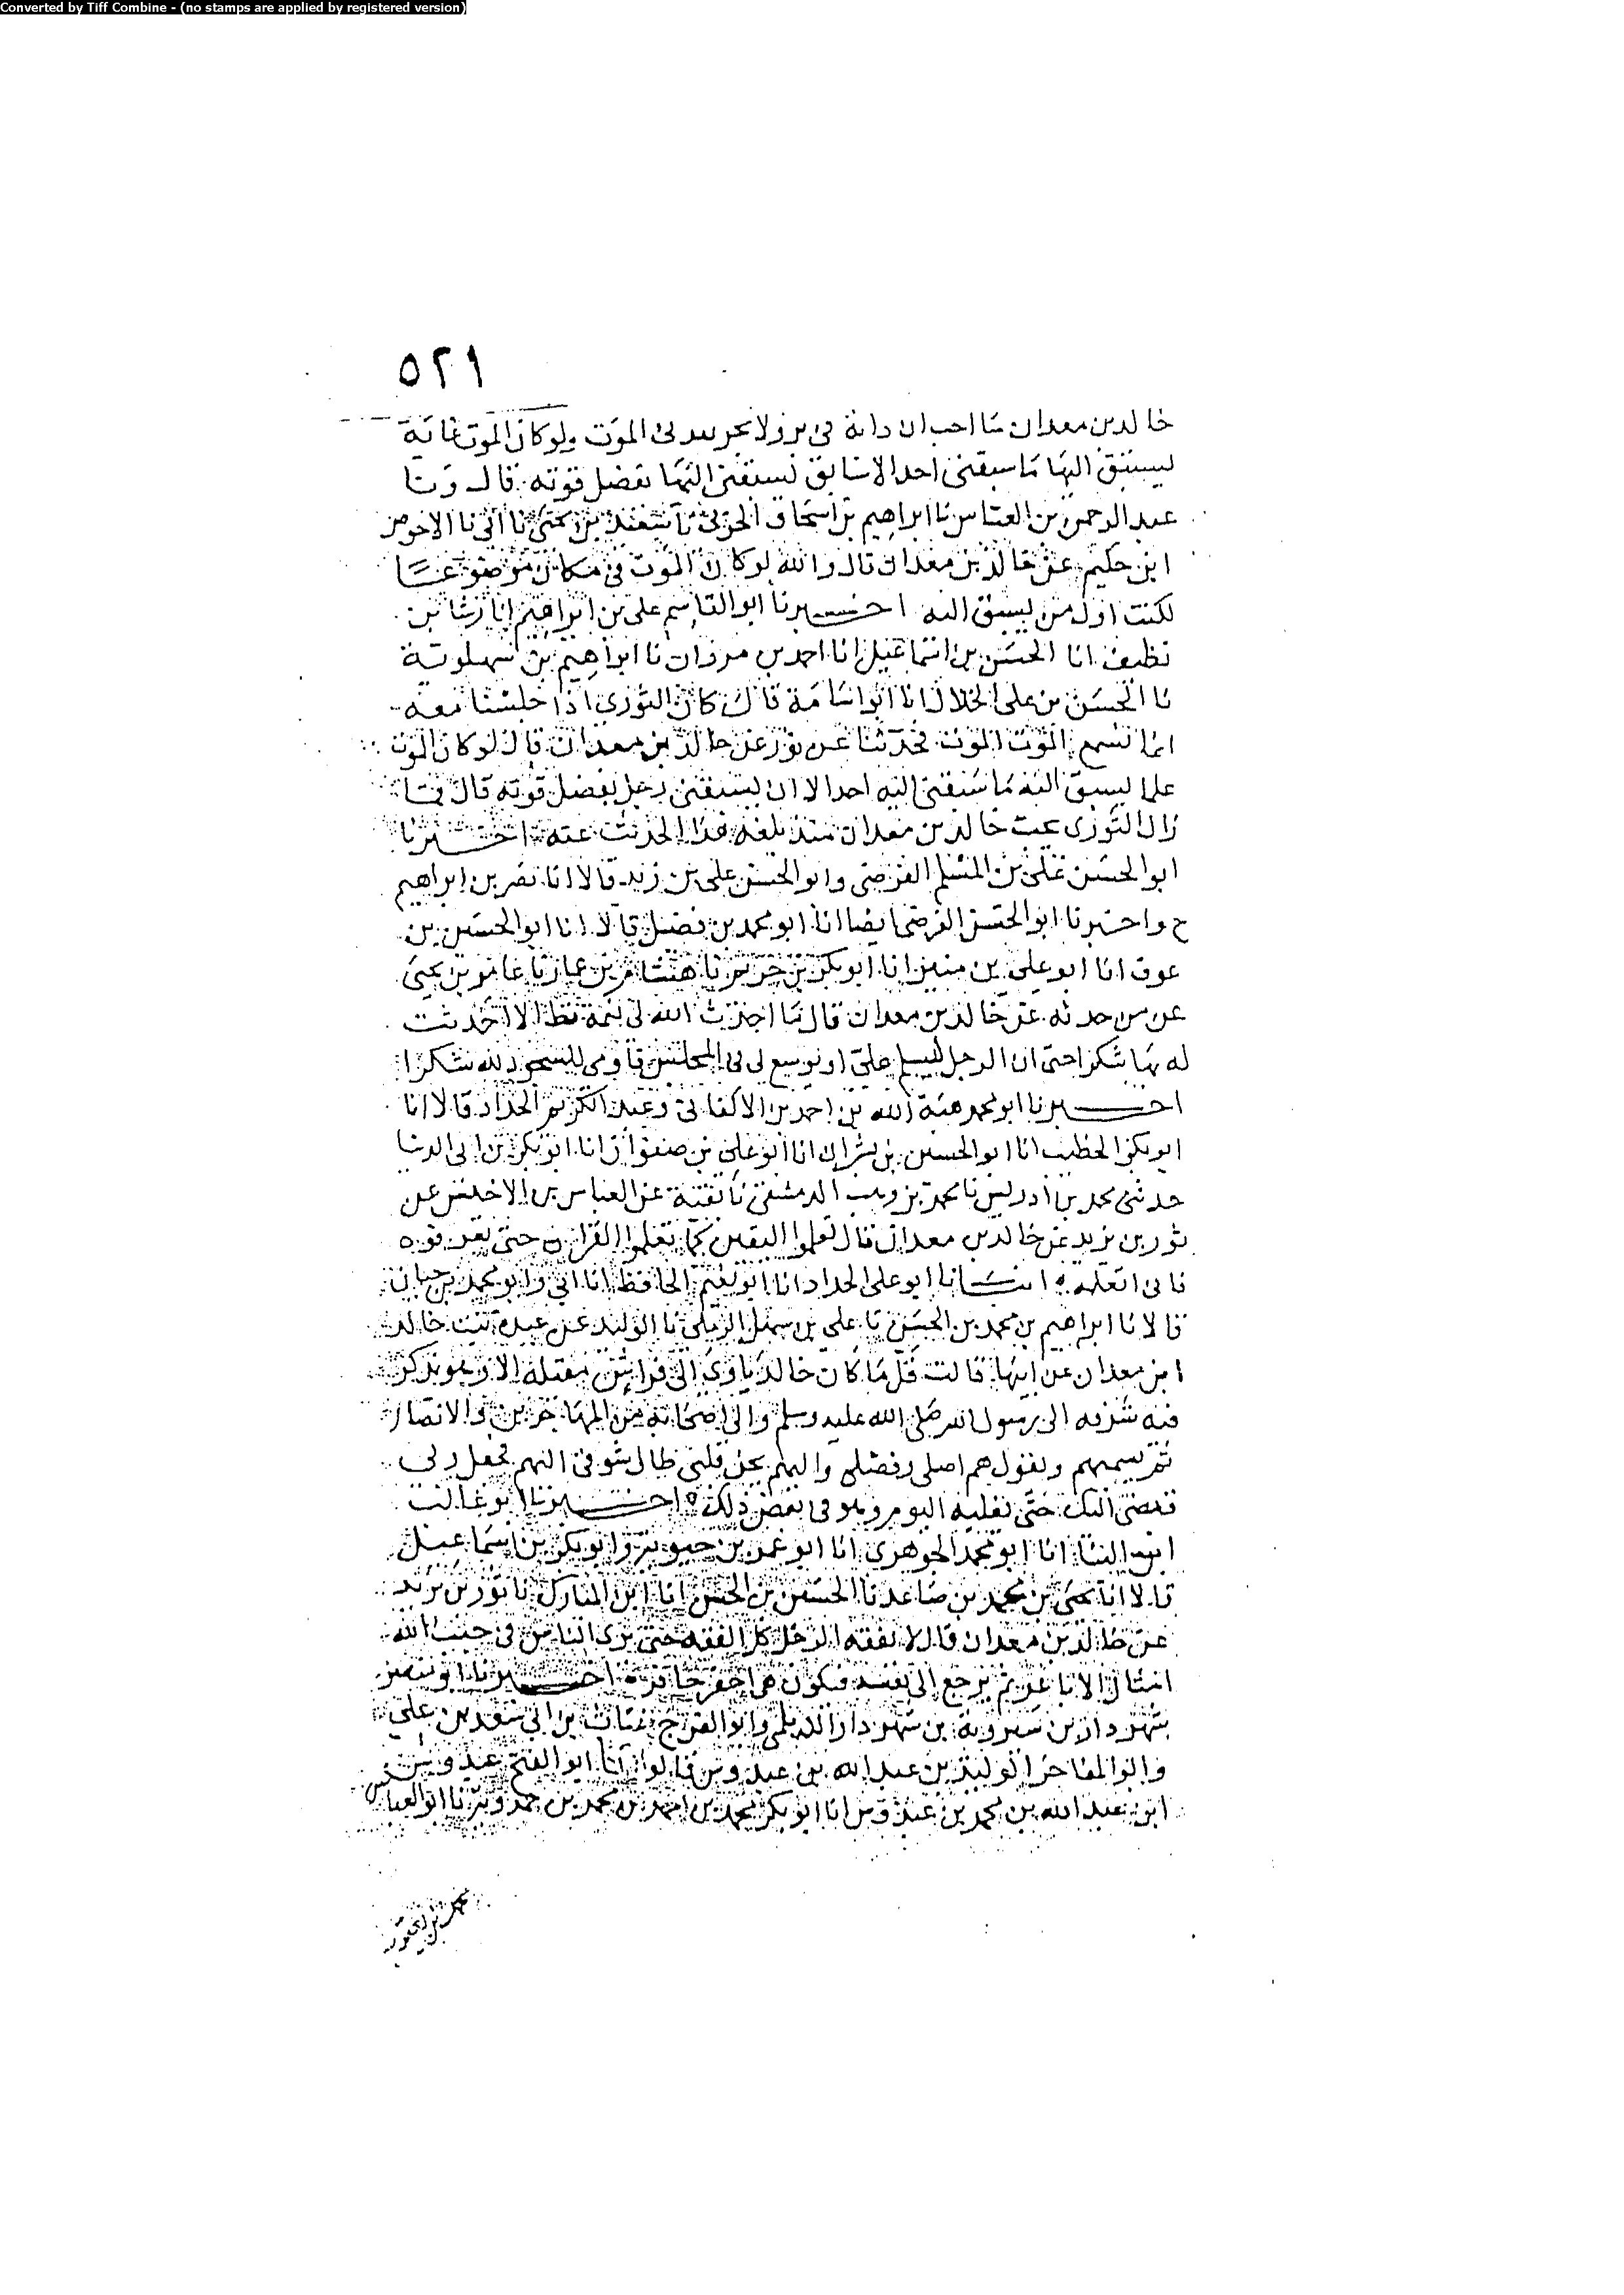 Converted by Tiff Combine - (no stamps are applied by registered version)
٥٢١
خالد بن معدان ما احب ان دابة في بر ولا بحر تفديني الموت ولو كان الموت غاية
يستبق اليها ما سبقني احد الا سابق يسبقني اليها بفضل قوته قال ونا
عبد الرحمن بن العباس نا ابراهيم بن اسحاق الحربي نا سعيد بن يحيى نا ابي نا الاحوص
ابن حكيم عن خالد بن معدان قال والله لو كان الموت في مكان موضوعا
لكنت اول من يسبق اليه اخبرنا ابو القاسم علي بن ابراهيم انا رشا بن
نظيف انا الحسن بن اسماعيل انا احمد بن مروان نا ابراهيم بن سهلوية
نا الحسن بن علي الخلال انا ابو اسامة قال كان الثوري اذا جلسنا معه
انما نسمع الموت الموت فحدثنا عن ثور عن خالد بن معدان قال لو كان الموت
علما يستبق اليه ما سبقني اليه احد الا ان يسبقني رجل بفضل قوته قال فما
زال الثوري يحب خالد بن معدان منذ بلغه هذا الحديث عنه اخبرنا
ابو الحسن علي بن المسلم الفرضي وابو الحسن علي بن زيد قالا انا نصر بن ابراهيم
ح واخبرنا ابو الحسن الفرضي ايضا انا ابو محمد بن فضيل قالا انا ابو الحسن بن
عوف انا ابو علي بن منير انا ابو بكر بن خريم نا هشام بن عمار نا عامر بن يحيى
عن من حدثه عن خالد بن معدان قال ما احدث الله لي نعمة قط الا احدثت
له بها شكرا حتى ان الرجل ليسلم علي او يوسع لي في المجلس فاومي للسجود لله شكرا
اخبرنا ابو محمد هبة الله بن احمد بن الاكفاني وعبد الكريم الحداد قالا انا
ابو بكر الخطيب انا ابو الحسين بن بشران انا ابو علي بن صفوان انا ابو بكر بن ابي الدنيا
حدثني محمد بن ادريس نا محمد بن وهب الدمشقي نا بقية عن العباس بن الاخنس عن
ثور بن يزيد عن خالد بن معدان قال تعلموا اليقين كما تعلموا القران حتى تعرفوه
فاني اتعلمه انبانا ابو علي الحداد انا ابو نعيم الحافظ انا ابي وابو محمد بن حيان
قالا نا ابراهيم بن محمد بن الحسن نا علي بن سهل الرملي نا الوليد عن عبدة بنت خالد
ابن معدان عن ابيها قالت قل ما كان خالد ياوي الى فراش مقيله الا وهو يذكر
فيه شوقه الى رسول الله صلى الله عليه وسلم والى اصحابه من المهاجرين والانصار
ثم يسميهم ويقول هم اصلي وفصلي واليهم يحن قلبي طال شوقي اليهم فعجل ربي
قبضي اليك حتى يغلبه النوم وهو في بعض ذلك اخبرنا ابو غالب
ابن البنا انا ابو محمد الجوهري انا ابو عمر بن حيويه وابو بكر بن اسماعيل
قالا انا يحيى بن محمد بن صاعد نا الحسين بن الحسن انا ابن المبارك نا ثور بن يزيد
عن خالد بن معدان قال لا يفقه الرجل كل الفقه حتى يرى الناس في جنب الله
امثال الاباعر ثم يرجع الى نفسه فيكون هي احقر حاقر اخبرنا ابو منصور
شهردار بن شيرويه بن شهردار الديلمي وابو الفرج بن ابي سعد بن علي
وابو المفاخر الوليد بن عبد الله بن عبدوس قالوا انا ابو الفتح عبدوس
ابن عبد الله بن محمد بن عبدوس انا ابو بكر محمد بن احمد بن محمد بن حمدويه نا ابو العباس
محمد بن يعقوب